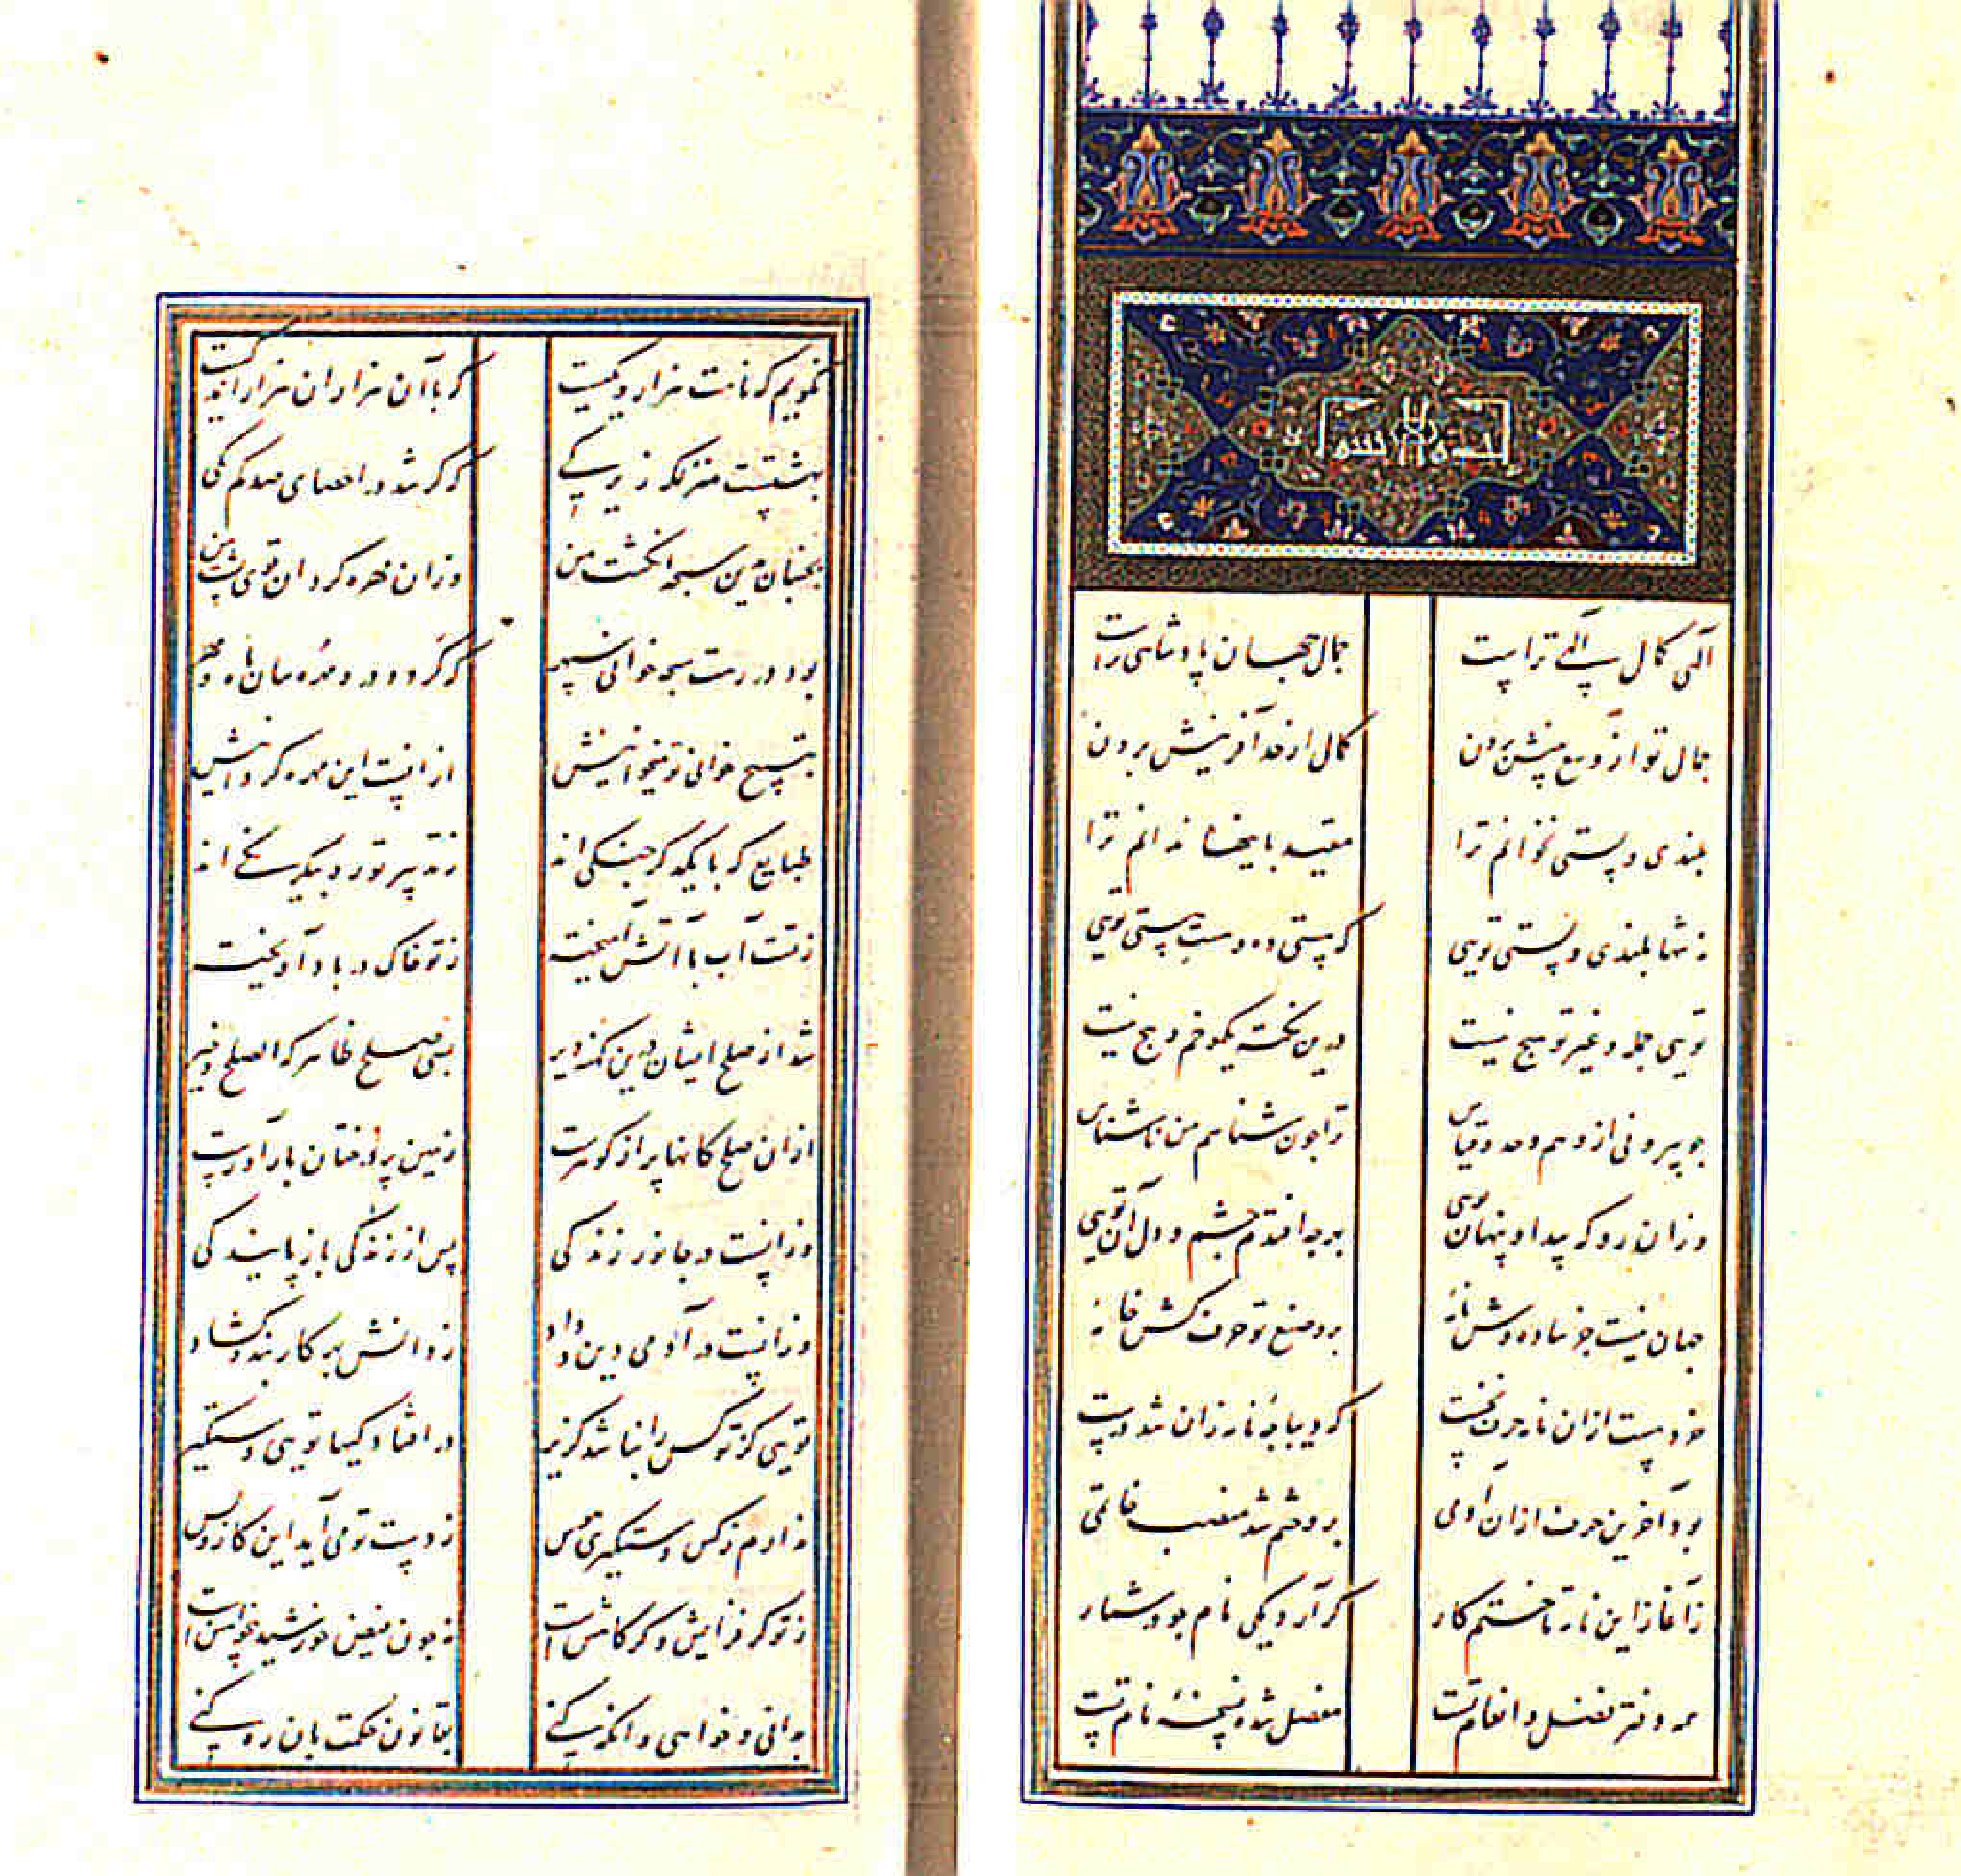 الهی کمال الهی تراست جمال جهان پادشاهی تراست
جمال تو از وسع بینش برون کمال از حد آفرینش برون
بلندی و پستی نخوانم ترا مقید باینها ندانم ترا
نه تنها بلندی و پستی تویی که هستی ده و هست هستی تویی
تویی جمله و غیر تو هیچ نیست درین نکته یکمو خم و پیچ نیست
چو بیرونی از وهم و حد و قیاس ترا چون شناسم من ناشناس
وزان رو که پیدا و پنهان تویی بهرچه افتدم چشم و دل آن تویی
جهان نیست جز ساده وش نامهٔ برو صنع تو حرف کش خامهٔ
خرد هست ازان نامه حرف نخست که دیباچهٔ نامه زان شد درست
بود آخرین حرف ازان آدمی برو ختم شد منصب خاتمی
ز آغاز این نامه تا ختم کار گر آرد یکی نام جو در شمار
همه دفتر فضل و انعام تست مفصل شده نسخهٔ نام تست
نگویم که نامت هزار و یکیست که با آن هزاران هزار اندکیست
بهشتست منزلگه زیرکی که گر شد در احصای صد کم یکی
بجنبان درین سبحه انگشت من وزان مهره گردان قوی پشت من
بود در رهت سبحه خوانی سپهر که گردد درو مهره سان ماه و مهر
بتسبیح خوانی تو میخوانیش ازانست این مهره گردانیش
طبایع که با یکدگر جنگی اند ز تدبیر تو در یکرنگی اند
زتست آب با آتش آمیخته ز تو خاک در باد آویخته
شد از صلح ایشان درین کهنه دیر بسی صلح ظاهر که الصلح خیر
ازان صلح کانها پر از گوهرست زمین پر درختان بارآورست
وزانست در جانور زندگی پس از زندگی باز پایندگی
وزانست در آدمی دین و داد ز دانش بهر کار بند و گشاد
تویی کز تو کس را نباشد گزیر در افتادگیها تویی دستگیر
ندارم ز کس دستگیری هوس ز دست تو می آید این کار و بس
ز تو گر فزایش و گر کاهش است نه چون فیض خورشید بی خواهش است
بدانی و خواهی و آنگه کنی بقانون حکمت بان ره کنی